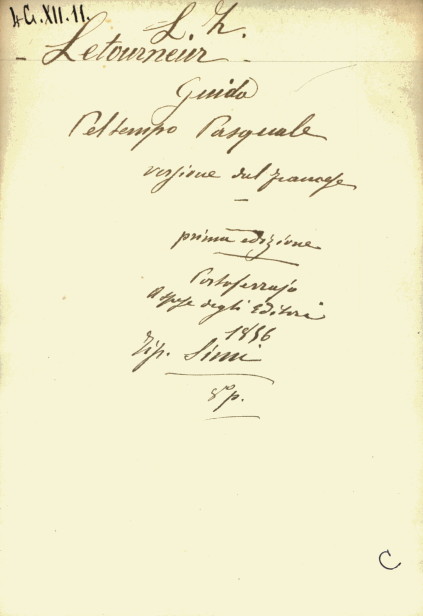 4 G. XII. 11.
L. Z.
Letourneur
Guido
Pel tempo Pasquale
versione dal francese
prima edizione
Portoferrajo
A spese degli Editori
1856
Tip. Simi
8° p.
C